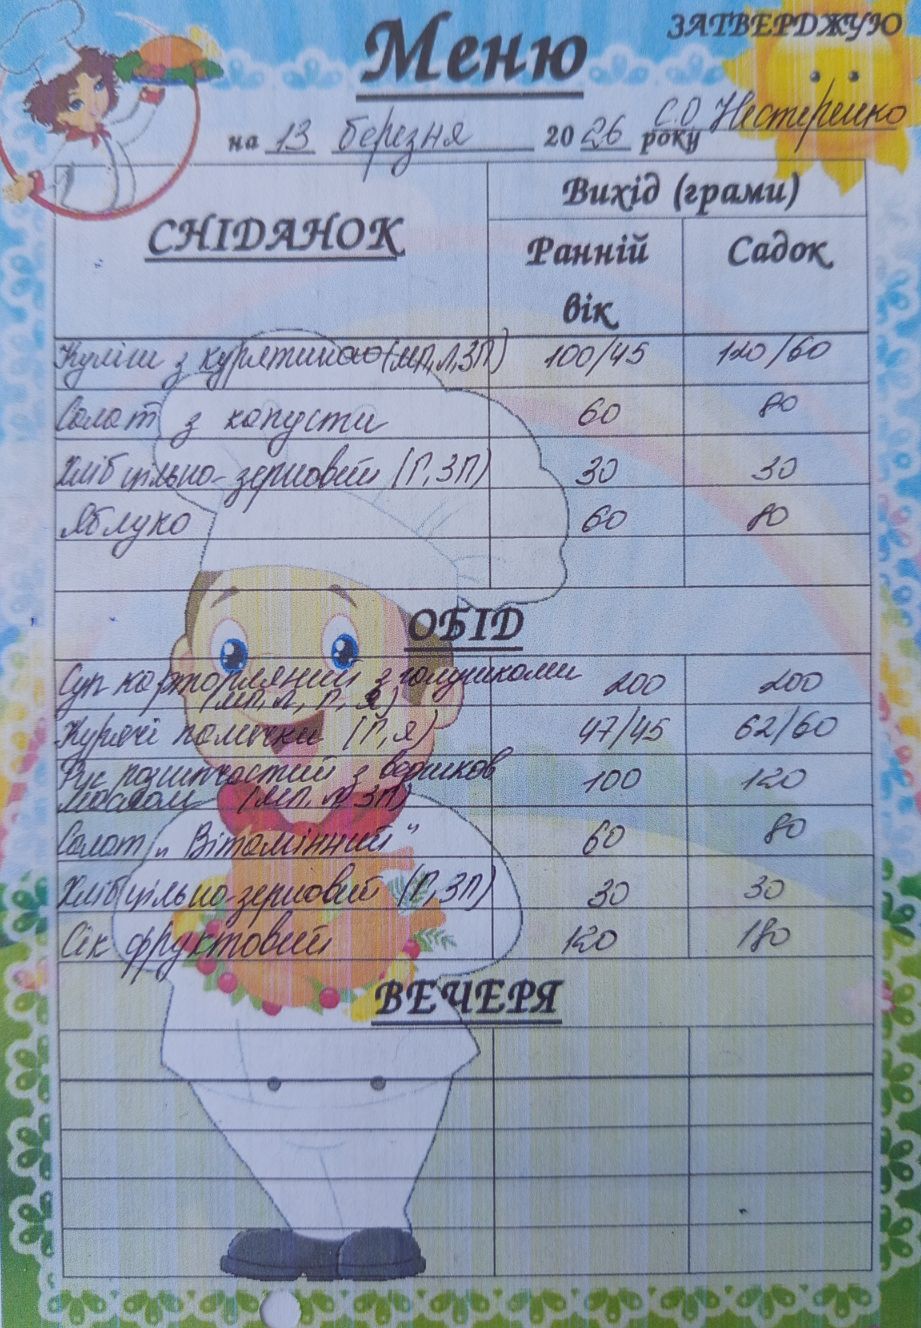 ЗАТВЕРДЖУЮ
Меню
С.О Нестеренко
на 13 березня 2026 року
СНІДАНОК
Вихід (грами)
Ранній вік
Садок
Куліш з курятиною (МП, Л, ЗП) 100/45 120/60
Салат з капусти 60 80
Хліб цільно-зерновий (Г, ЗП) 30 30
Яблуко 60 80
ОБІД
Суп картопляний з галушками 200 200
(МП, Л, Г, Я)
Курячі палички (Г, Я) 47/45 62/60
Рис розсипчастий з вершков 100 120
маслом (МП, Л, ЗП)
Салат „Вітамінний" 60 80
Хліб цільно-зерновий (Г, ЗП) 30 30
Сік фруктовий 120 180
ВЕЧЕРЯ